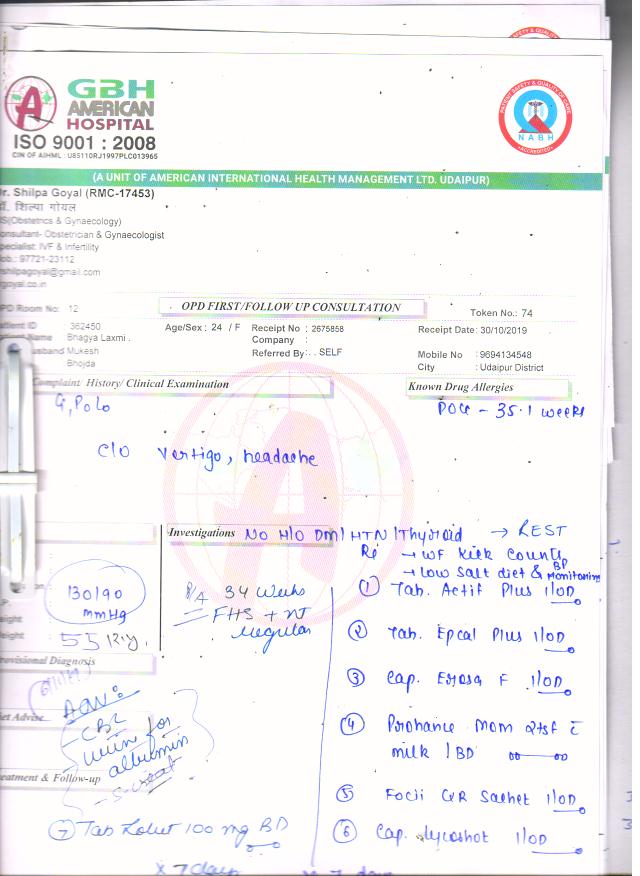 GBH
AMERICAN
HOSPITAL
ISO 9001 : 2008
CIN OF AIHML : U85110RJ1997PLC013965
PATIENT SAFETY & QUALITY OF CARE
NABH
ACCREDITED
(A UNIT OF AMERICAN INTERNATIONAL HEALTH MANAGEMENT LTD. UDAIPUR)
Dr. Shilpa Goyal (RMC-17453)
डॉ. शिल्पा गोयल
MS(Obstetrics & Gynaecology)
Consultant- Obstetrician & Gynaecologist
Specialist: IVF & Infertility
Mob.: 97721-23112
rshilpagoyal@gmail.com
rgoyal.co.in
OPD Room No: 12
OPD FIRST/FOLLOW UP CONSULTATION
Token No.: 74
Patient ID : 362450
Age/Sex : 24 / F
Receipt No : 2675858
Receipt Date : 30/10/2019
Name : Bhagya Laxmi .
Company :
Husband Mukesh
Referred By: . . SELF
Mobile No : 9694134548
Bhojda
City : Udaipur District
Complaint History/ Clinical Examination
Known Drug Allergies
G1P0L0
POG - 35.1 weeks
C/O Vertigo, headache
Investigations NO H/O DM/HTN/Thyroid → REST
Rx → WF Kick Count
→ Low Salt diet & BP monitoring
130/90
mmHg
P/A 34 weeks
FHS + nt
regular
55 kg.
① Tab. Actif Plus 1/OD
② Tab. Epcal Plus 1/OD
Provisional Diagnosis
③ Cap. F 1/OD
Diet Advise
Adv:
- CBC
- Urine for
albumin
④ Prohance Mom 2tsf c̄
milk / BD
Treatment & Follow-up
⑤ Sachet 1/OD
⑦ Tab 100 mg BD
⑥ Cap. Lycoshot 1/OD
x 7 days